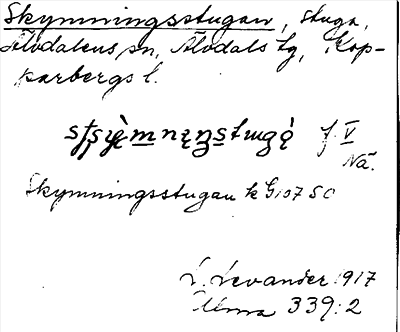 Skymningsstugan, stuga,
Älvdalens sn, Älvdals tg, Kop-
parbergs l.
f. V
Nä.
Skymningsstugan k G107 SO
L. Levander 1917
Ulma 339:2